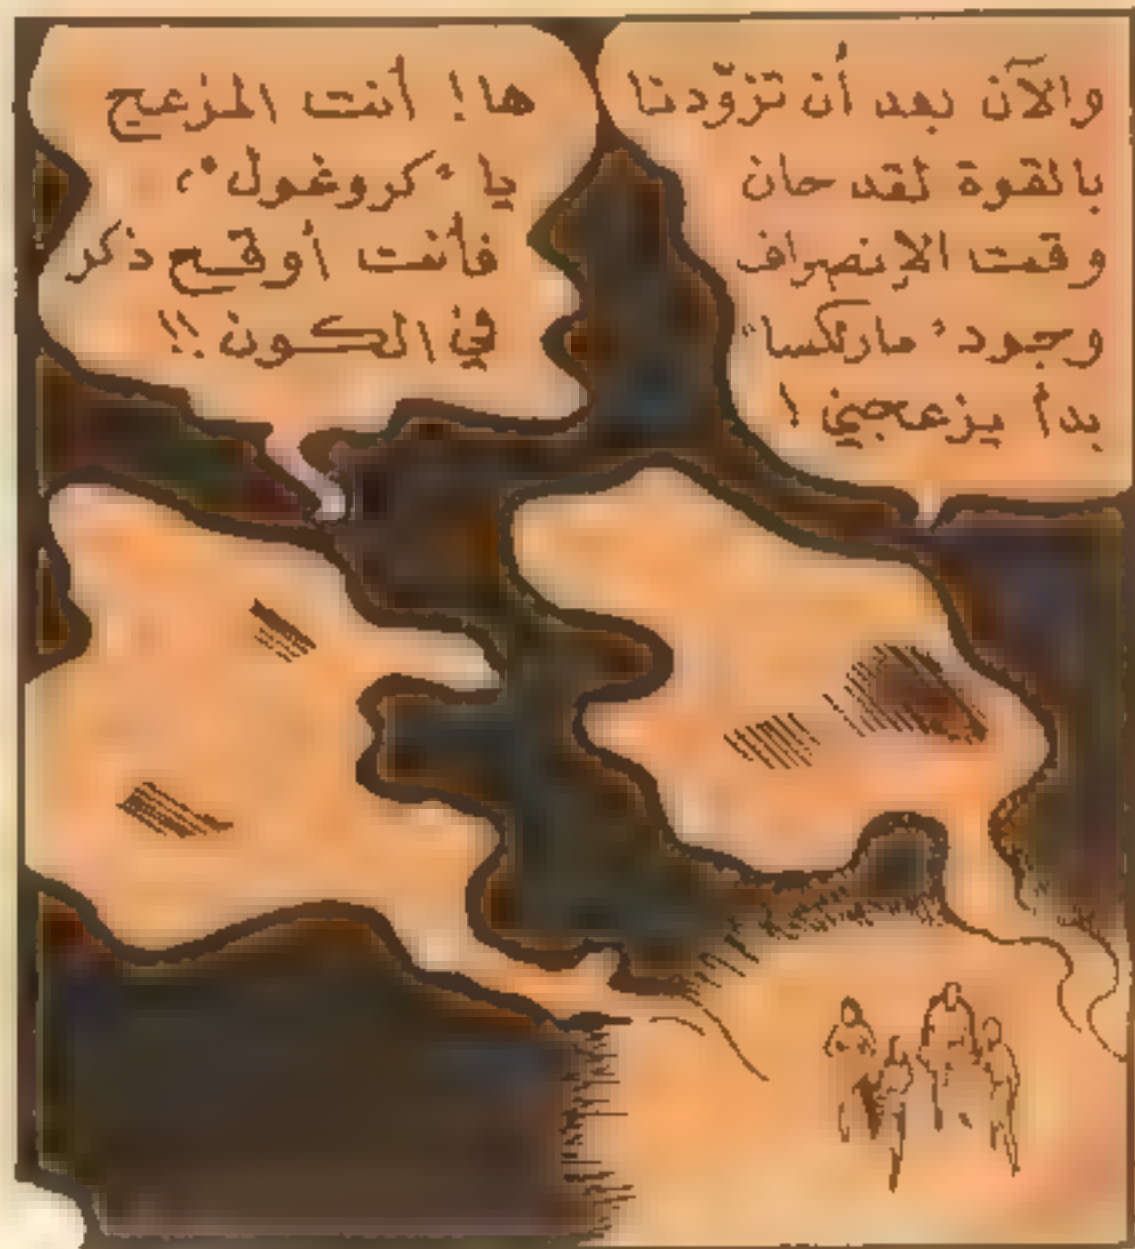 والآن بعد أن تزوّدنا
بالقوة لقد حان
وقت الإنصراف
وجود "ماركسا"
بدأ يزعجني !
ها! أنت المزعج
يا "كروغول"،
فأنت أوقح ذكر
في الكون !!